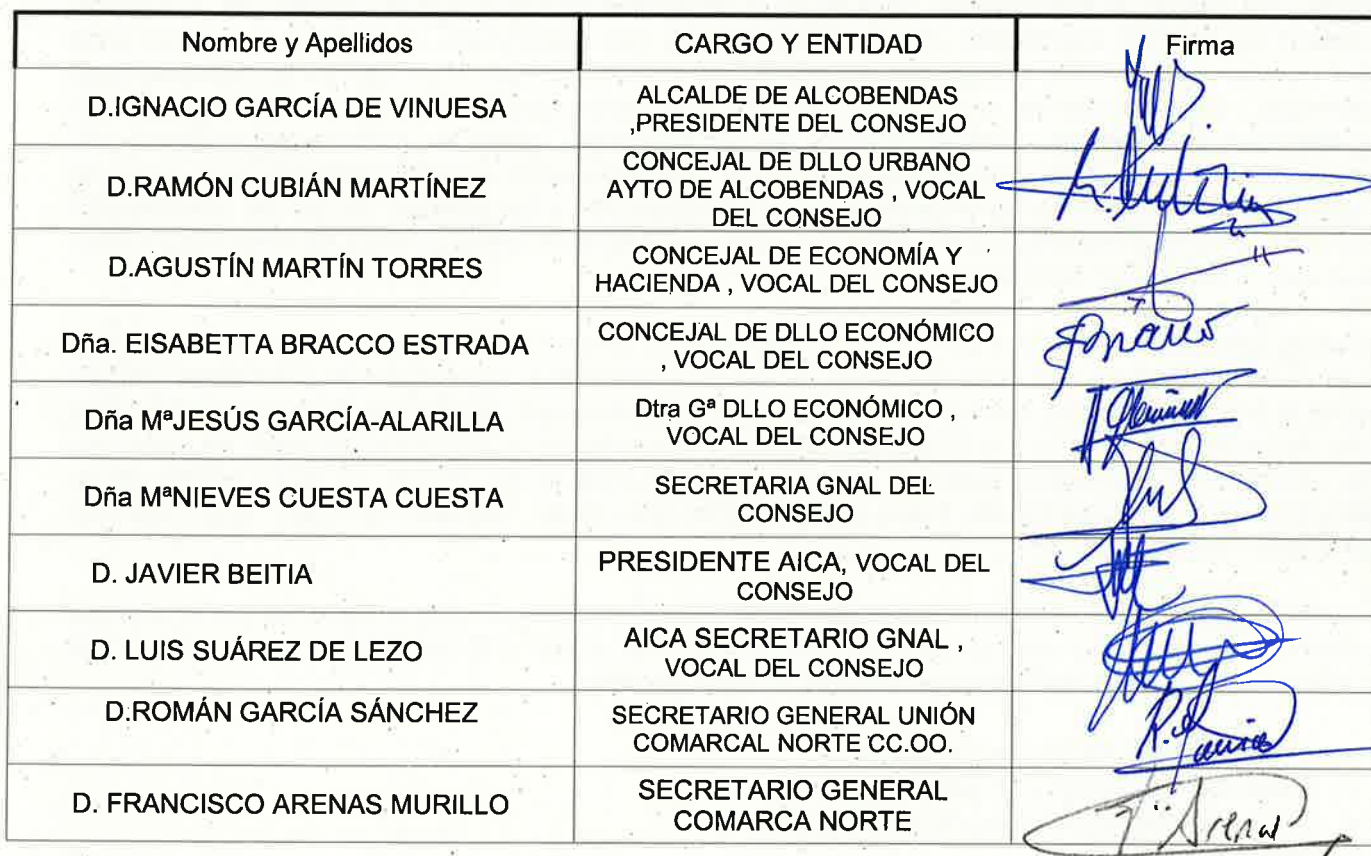 Nombre y Apellidos CARGO Y ENTIDAD Firma
D.IGNACIO GARCÍA DE VINUESA
ALCALDE DE ALCOBENDAS
,PRESIDENTE DEL CONSEJO
D.RAMÓN CUBIÁN MARTÍNEZ
CONCEJAL DE DLLO URBANO
AYTO DE ALCOBENDAS , VOCAL
DEL CONSEJO
D.AGUSTÍN MARTÍN TORRES
CONCEJAL DE ECONOMÍA Y
HACIENDA , VOCAL DEL CONSEJO
Dña. EISABETTA BRACCO ESTRADA
CONCEJAL DE DLLO ECONÓMICO
, VOCAL DEL CONSEJO
Dña MªJESÚS GARCÍA-ALARILLA
Dtra Gª DLLO ECONÓMICO ,
VOCAL DEL CONSEJO
Dña MªNIEVES CUESTA CUESTA
SECRETARIA GNAL DEL
CONSEJO
D. JAVIER BEITIA
PRESIDENTE AICA, VOCAL DEL
CONSEJO
D. LUIS SUÁREZ DE LEZO
AICA SECRETARIO GNAL ,
VOCAL DEL CONSEJO
D.ROMÁN GARCÍA SÁNCHEZ
SECRETARIO GENERAL UNIÓN
COMARCAL NORTE CC.OO.
D. FRANCISCO ARENAS MURILLO
SECRETARIO GENERAL
COMARCA NORTE